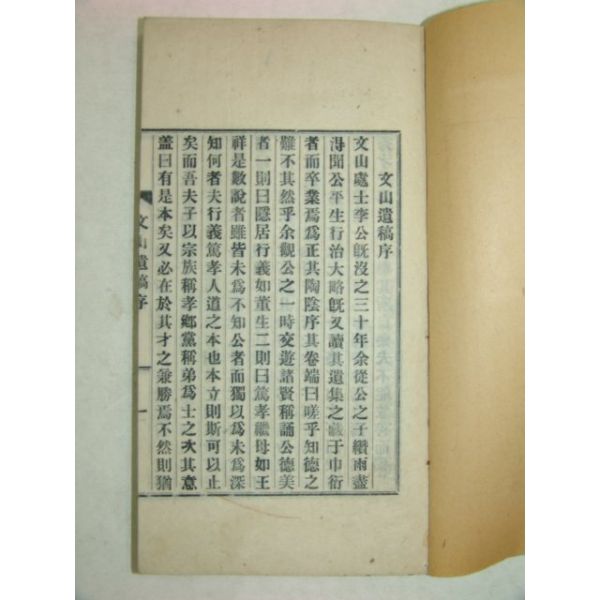 文山遺稿序
文山處士李公旣沒之三十年余從公之子纘雨盡
淂聞公平生行治大略旣又讀其遺集之藏于巾衍
者而卒業焉爲正其陶陰序其卷端曰嗟乎知德之
難不其然乎余觀公之一時交遊諸賢稱誦公德美
者一則曰隱居行義如董生二則曰篤孝繼母如王
祥是數說者雖皆未爲不知公者而獨以爲未爲深
知何者夫行義篤孝人道之本也本立則斯可以止
矣而吾夫子以宗族稱孝鄕黨稱弟爲士之次其意
蓋曰有是本矣又必在於其才之兼勝焉不然則猶
文山遺稿序
一